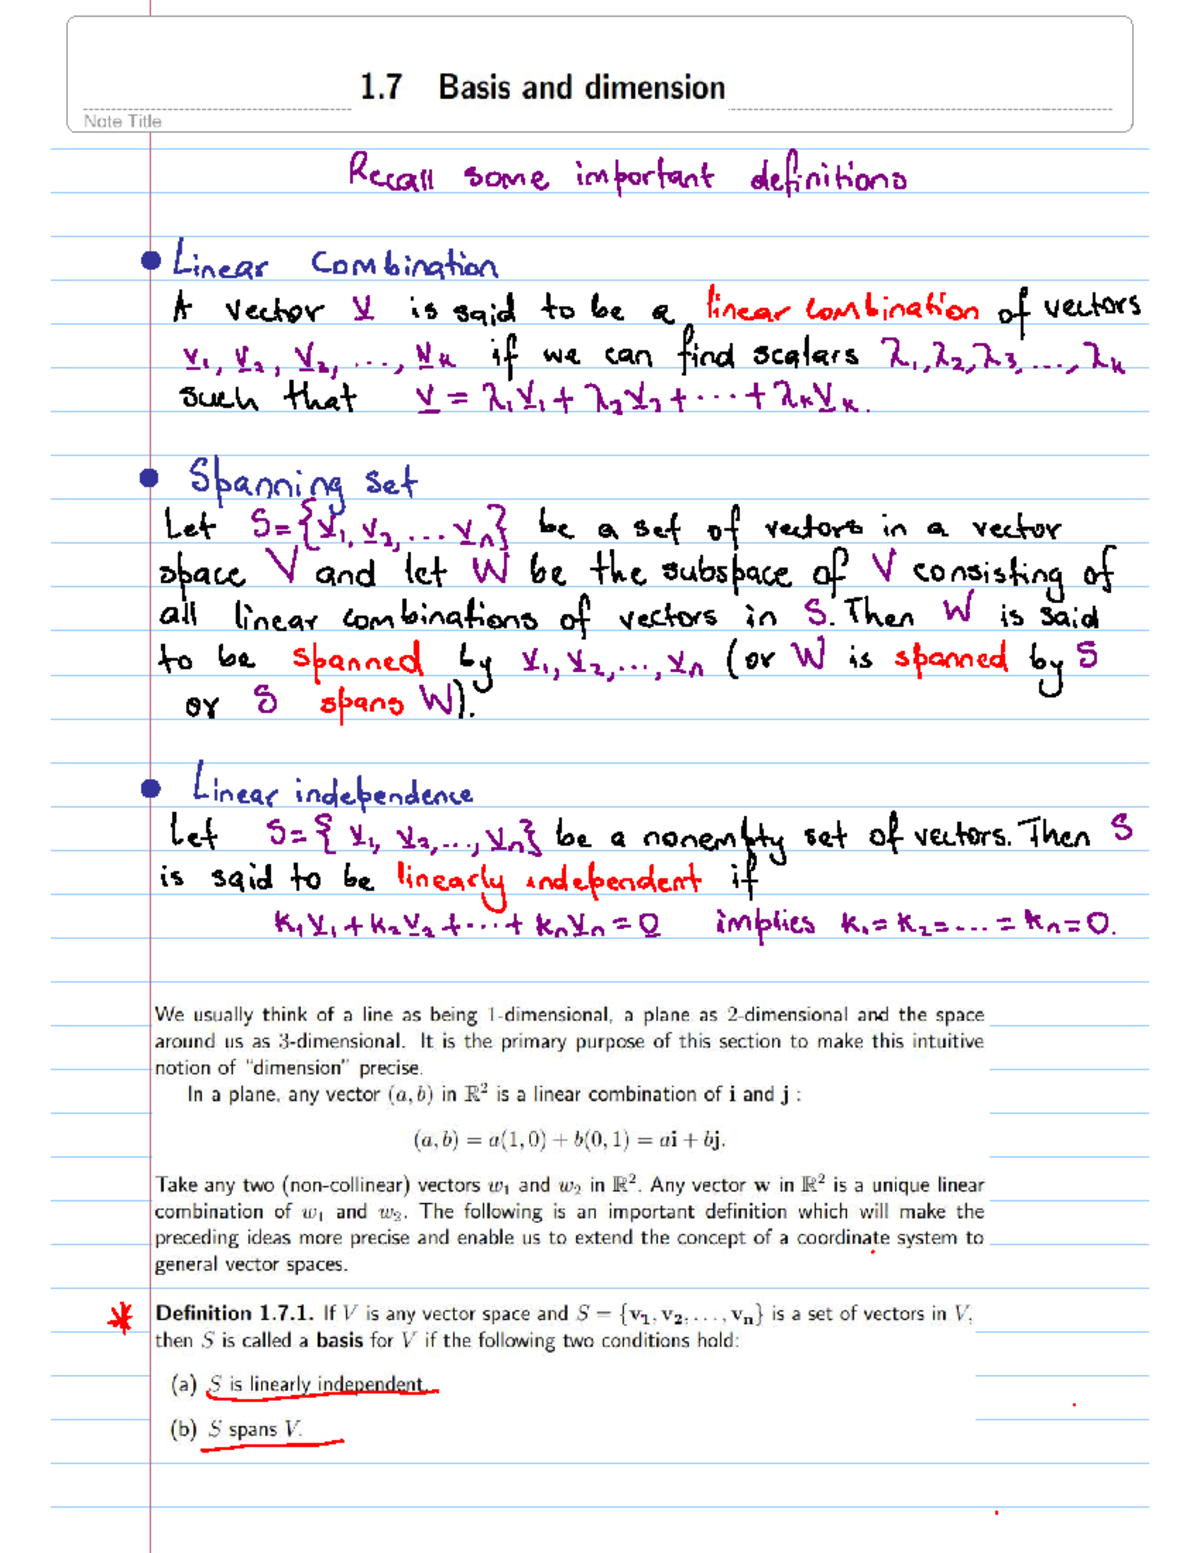 1.7 Basis and dimension
Note Title
Recall some important definitions
• Linear Combination
A vector v is said to be a linear combination of vectors
v₁, v₂, v₂, ..., vₖ if we can find scalars λ₁, λ₂, λ3, ..., λₖ
such that v = λ₁v₁ + λ₂v₂ + ... + λₖvₖ.
• Spanning set
Let S = {v₁, v₂, ... vₙ} be a set of vectors in a vector
space V and let W be the subspace of V consisting of
all linear combinations of vectors in S. Then W is said
to be spanned by v₁, v₂, ..., vₙ (or W is spanned by S
or S spans W).
• Linear independence
Let S = { v₁, v₂, ..., vₙ} be a nonempty set of vectors. Then S
is said to be linearly independent if
k₁v₁ + k₂v₂ + ... + kₙvₙ = 0 implies k₁ = k₂ = ... = kₙ = 0.
We usually think of a line as being 1-dimensional, a plane as 2-dimensional and the space
around us as 3-dimensional. It is the primary purpose of this section to make this intuitive
notion of "dimension" precise.
In a plane, any vector (a, b) in ℝ² is a linear combination of i and j :
(a, b) = a(1, 0) + b(0, 1) = ai + bj.
Take any two (non-collinear) vectors w₁ and w₂ in ℝ². Any vector w in ℝ² is a unique linear
combination of w₁ and w₂. The following is an important definition which will make the
preceding ideas more precise and enable us to extend the concept of a coordinate system to
general vector spaces.
* Definition 1.7.1. If V is any vector space and S = {v₁, v₂, ..., vₙ} is a set of vectors in V,
then S is called a basis for V if the following two conditions hold:
(a) S is linearly independent.
(b) S spans V.